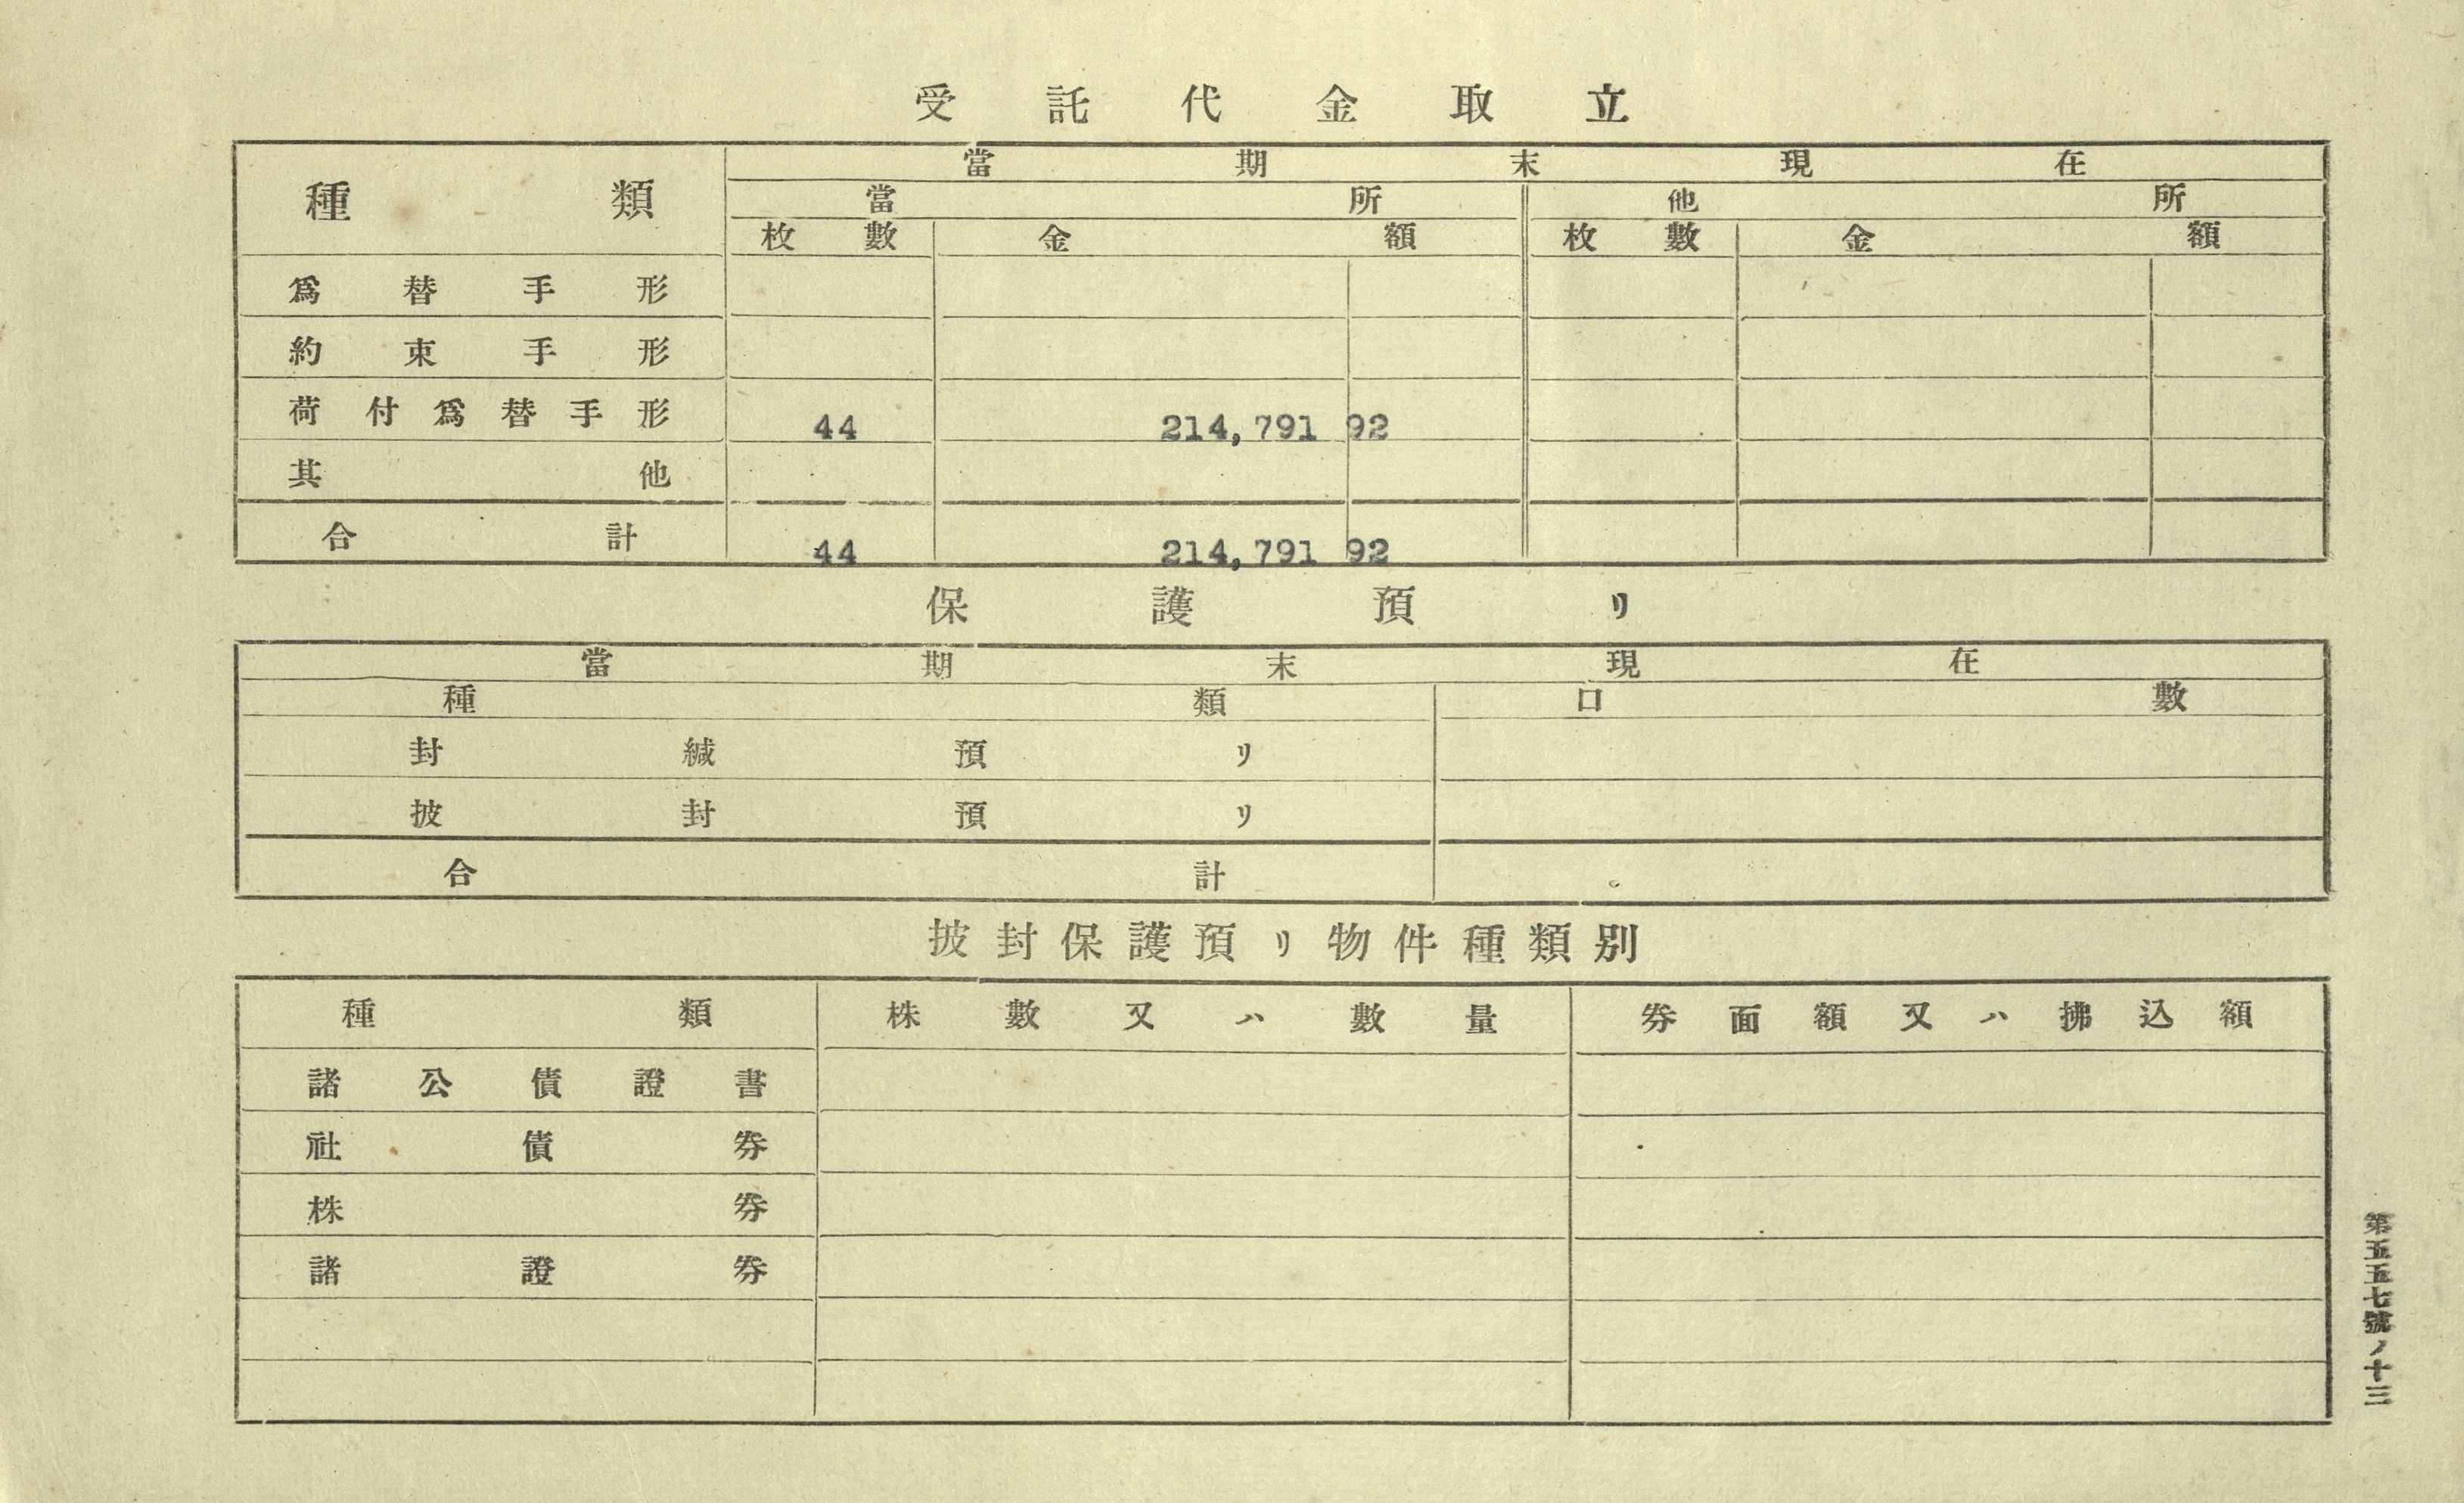 受託代金取立
種類 當期末現在
當所 他所
枚數 金額 枚數 金額
爲替手形
約束手形
荷付爲替手形 44 214,791 92
其他
合計 44 214,791 92
保護預リ
當期末現在
種類 口數
封緘預リ
披封預リ
合計
披封保護預リ物件種類別
種類 株數又ハ數量 券面額又ハ拂込額
諸公債證書
社債券
株券
諸證券
第五五七號ノ十三